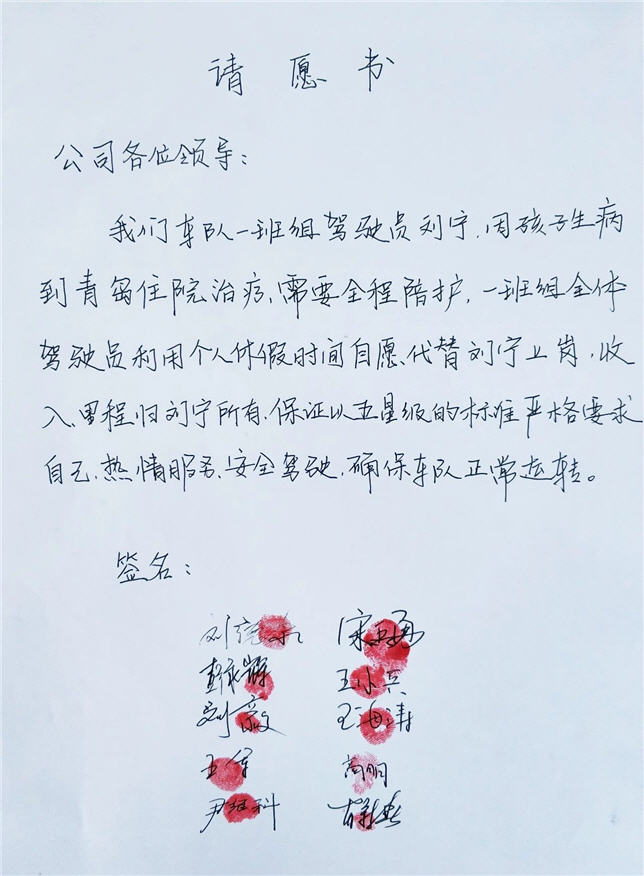 请愿书
公司各位领导：
我们车队一班组驾驶员刘宁，因孩子生病
到青岛住院治疗，需要全程陪护，一班组全体
驾驶员利用个人休假时间自愿代替刘宁上岗，收
入、里程归刘宁所有，保证以五星级的标准严格要求
自己，热情服务、安全驾驶，确保车队正常运转。
签名：
王小兵
刘毅 王海涛
尚明
尹继科